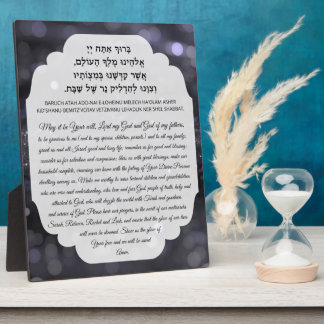 בָּרוּךְ אַתָּה יְיָ
אֱלֹהֵינוּ מֶלֶךְ הָעוֹלָם,
אֲשֶׁר קִדְּשָׁנוּ בְּמִצְוֹתָיו
וְצִוָּנוּ לְהַדְלִיק נֵר שֶׁל שַׁבָּת.
BARUCH ATAH ADO-NAI E-LOHEINU MELECH HA'OLAM ASHER
KID'SHANU BEMITZVOTAV VETZIVANU LEHADLIK NER SHEL SHABBAT.
May it be Your will, Lord my God and God of my fathers,
to be gracious to me (and to my husband, children, parents) and to all my family;
grant us and all Israel good and long life; remember us for good and blessing;
consider us for salvation and compassion; bless us with great blessings; make our
household complete, crowning our home with the feeling of Your Divine Presence
dwelling among us. Make me worthy to raise learned children and grandchildren,
who are wise and understanding, who love and fear God, people of truth, holy and
attached to God, who will dazzle the world with Torah and goodness
and service of God. Please hear our prayers, in the merit of our matriarchs
Sarah, Rebecca, Rachel and Leah, and ensure that the glow of our lives
will never be dimmed. Show us the glow of
Your face and we will be saved.
Amen.